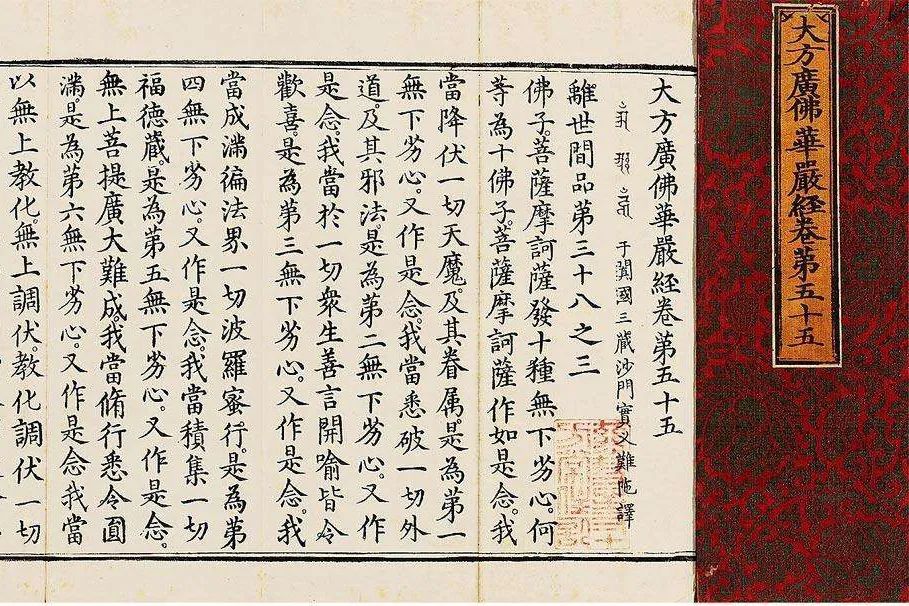 大方廣佛華嚴經卷第五十五
大方廣佛華嚴經卷第五十五
于闐國三藏沙門實叉難陁譯
離世間品第三十八之三
佛子。菩薩摩訶薩發十種無下劣心。何
等為十。佛子。菩薩摩訶薩作如是念。我
當降伏一切天魔。及其眷属。是為第一
無下劣心。又作是念。我當悉破一切外
道。及其邪法。是為第二無下劣心。又作
是念。我當於一切衆生善言開喻。皆令
歡喜。是為第三無下劣心。又作是念。我
當成滿徧法界一切波羅蜜行。是為第
四無下劣心。又作是念。我當積集一切
福德藏。是為第五無下劣心。又作是念。
無上菩提廣大難成。我當脩行悉令圓
滿。是為第六無下劣心。又作是念。我當
以無上教化。無上調伏。教化調伏一切